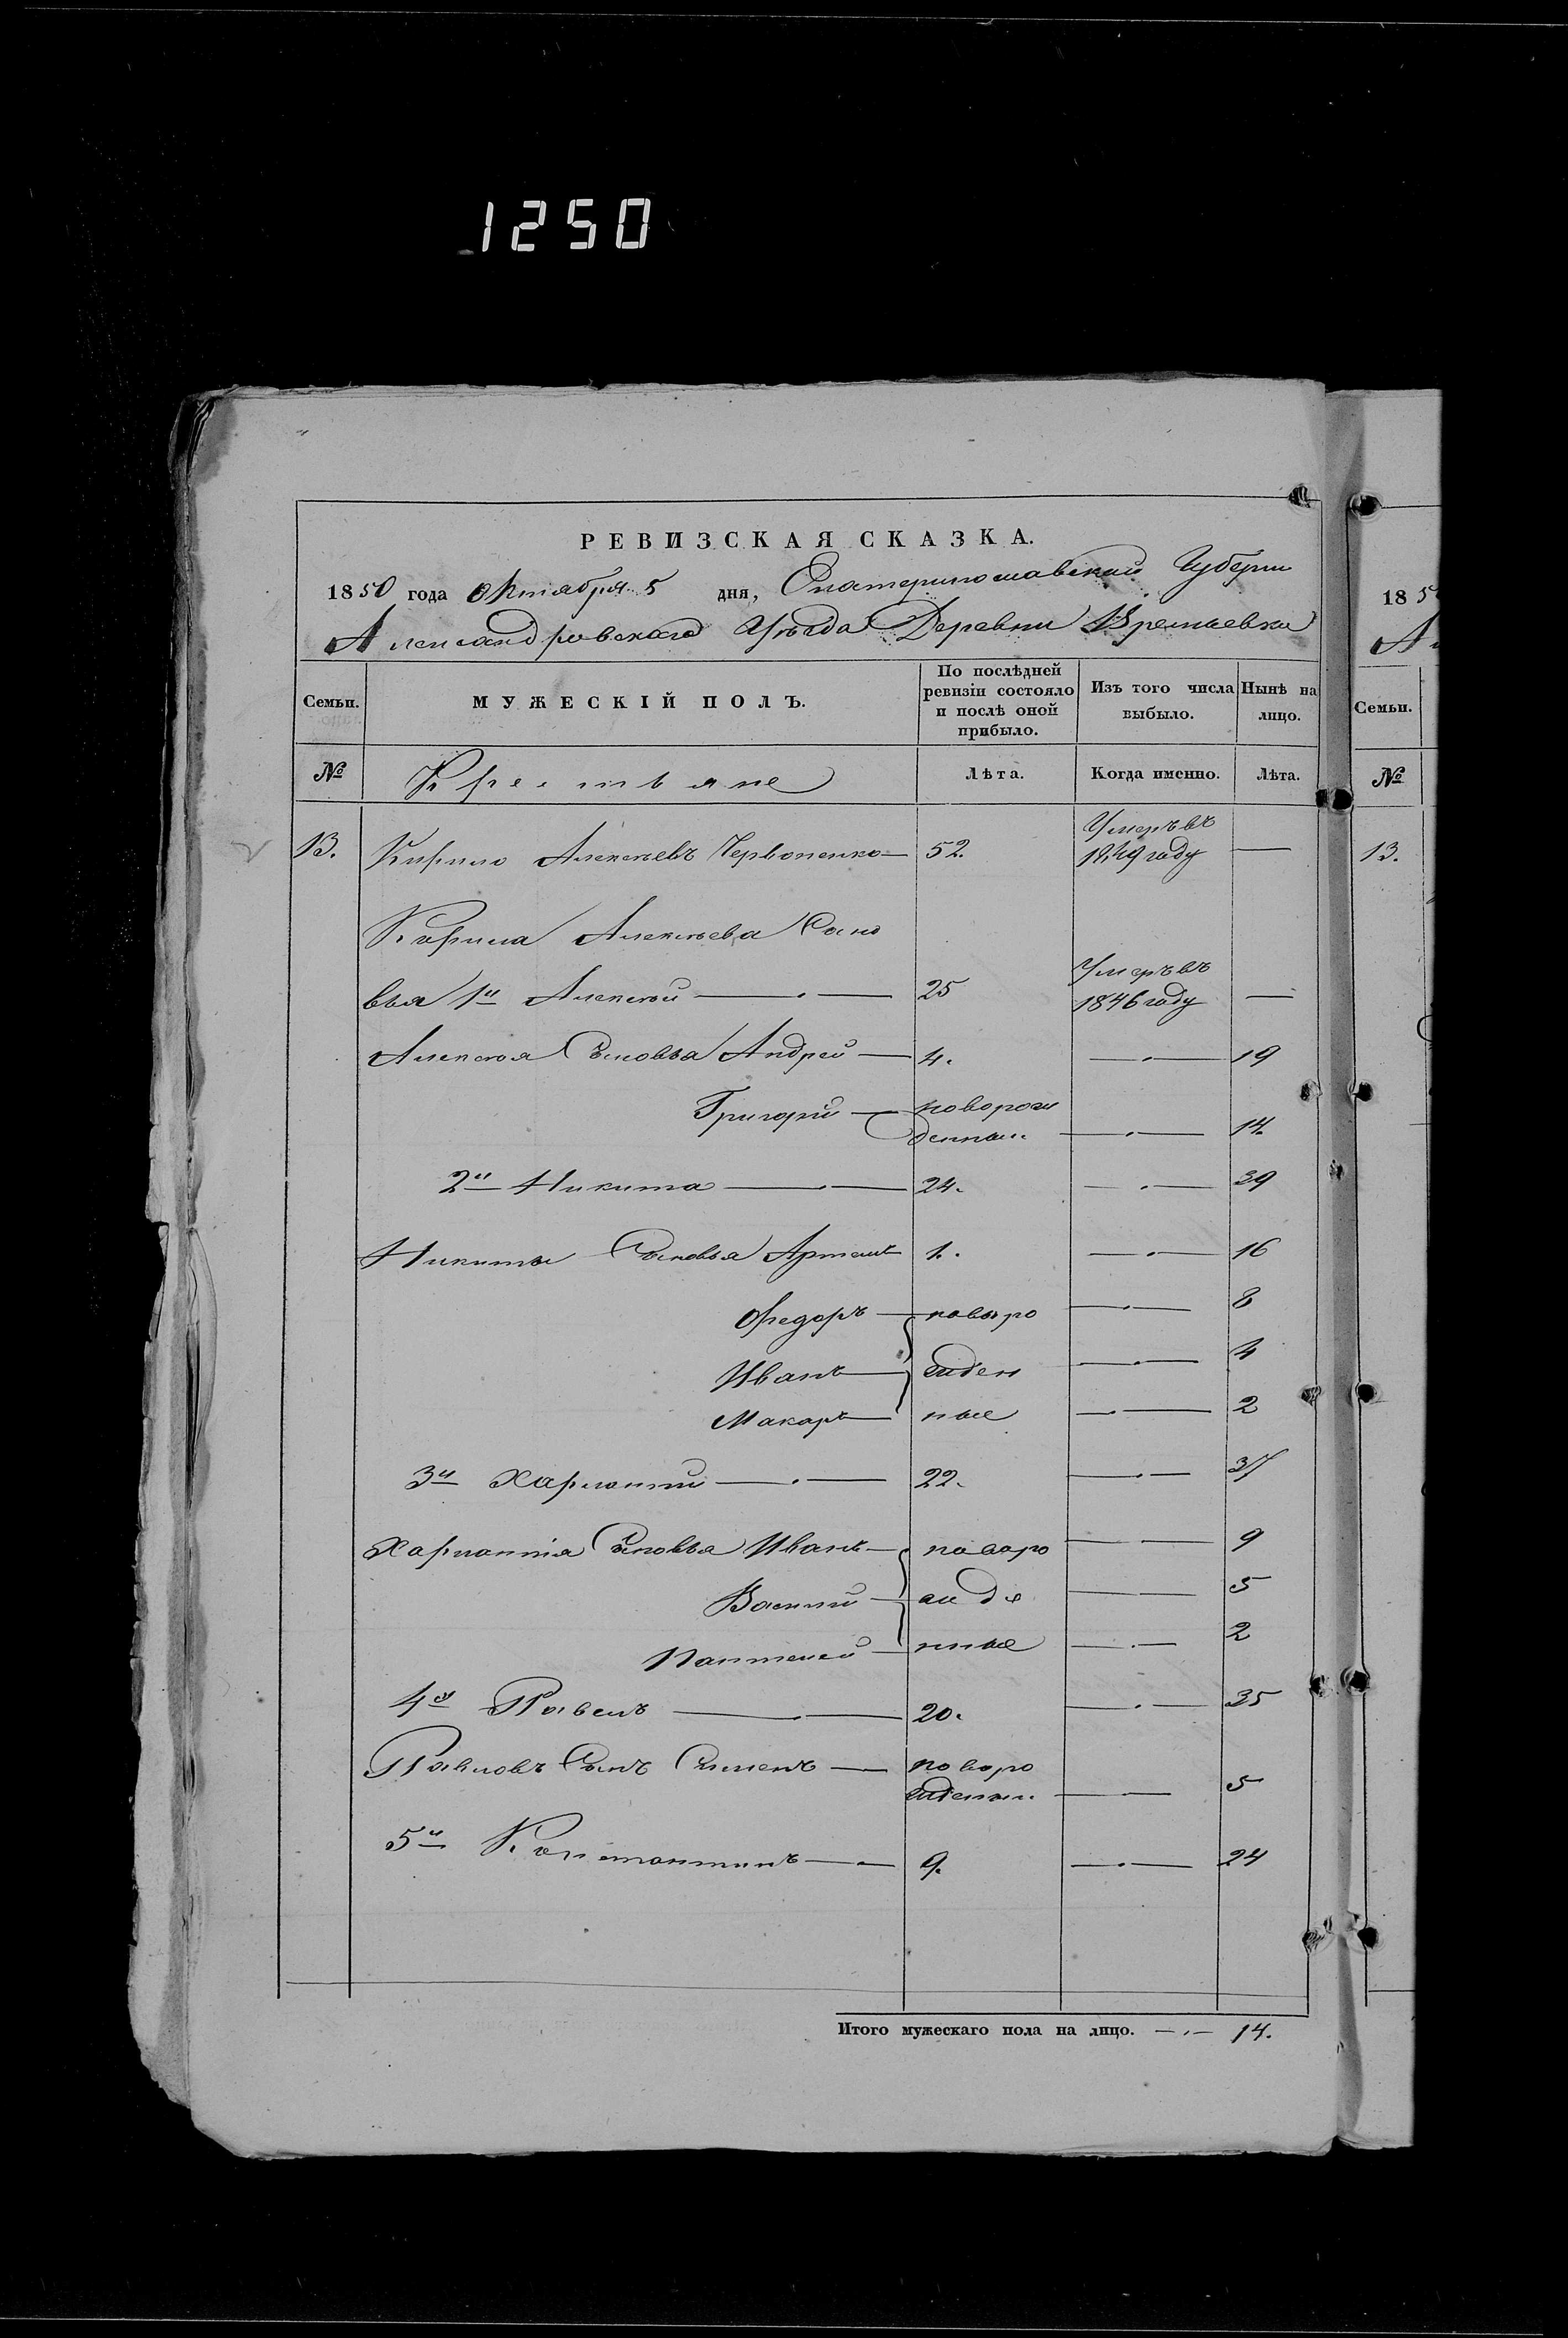 1250
РЕВИЗСКАЯ СКАЗКА.
1850 года Октября 5 дня, Екатеринославской Губерни
Александровскаго Уѣзда Деревни Времьевки
185
А
Семьи. МУЖЕСКІЙ ПОЛЪ. По послѣдней ревизіи состояло и послѣ оной прибыло. Изъ того числа выбыло. Нынѣ на лицо.
Семьи.
№ Крестьяне Лѣта. Когда именно. Лѣта.
№
13. Кирило Алексѣевъ Червоненко — 52. Умеръ въ 1849 году —
13.
Кирила Алексѣева Сыно
вья 1й Алексѣй — 25 Умеръ въ 1846 году —
Алексѣя Сыновья Андрей — 4. — 19
Григорій — новорож
денный — 14.
2й Никита — 24. — 39
Никиты Сыновья Артемъ 1. — 16
Федоръ — новоро — 8
Иванъ — жден — 4
Макаръ — ные — 2
3й Харлантій — 22. — 37
Харлантія Сыновья Иванъ — новоро — 9
Василий — жде — 5
Пантелей — нные — 2
4й Павелъ — 20. — 35
Павловъ Сынъ Сименъ — новоро
жденный — 5
5й Константинъ — 9. — 24
Итого мужескаго пола на лицо. — 14.